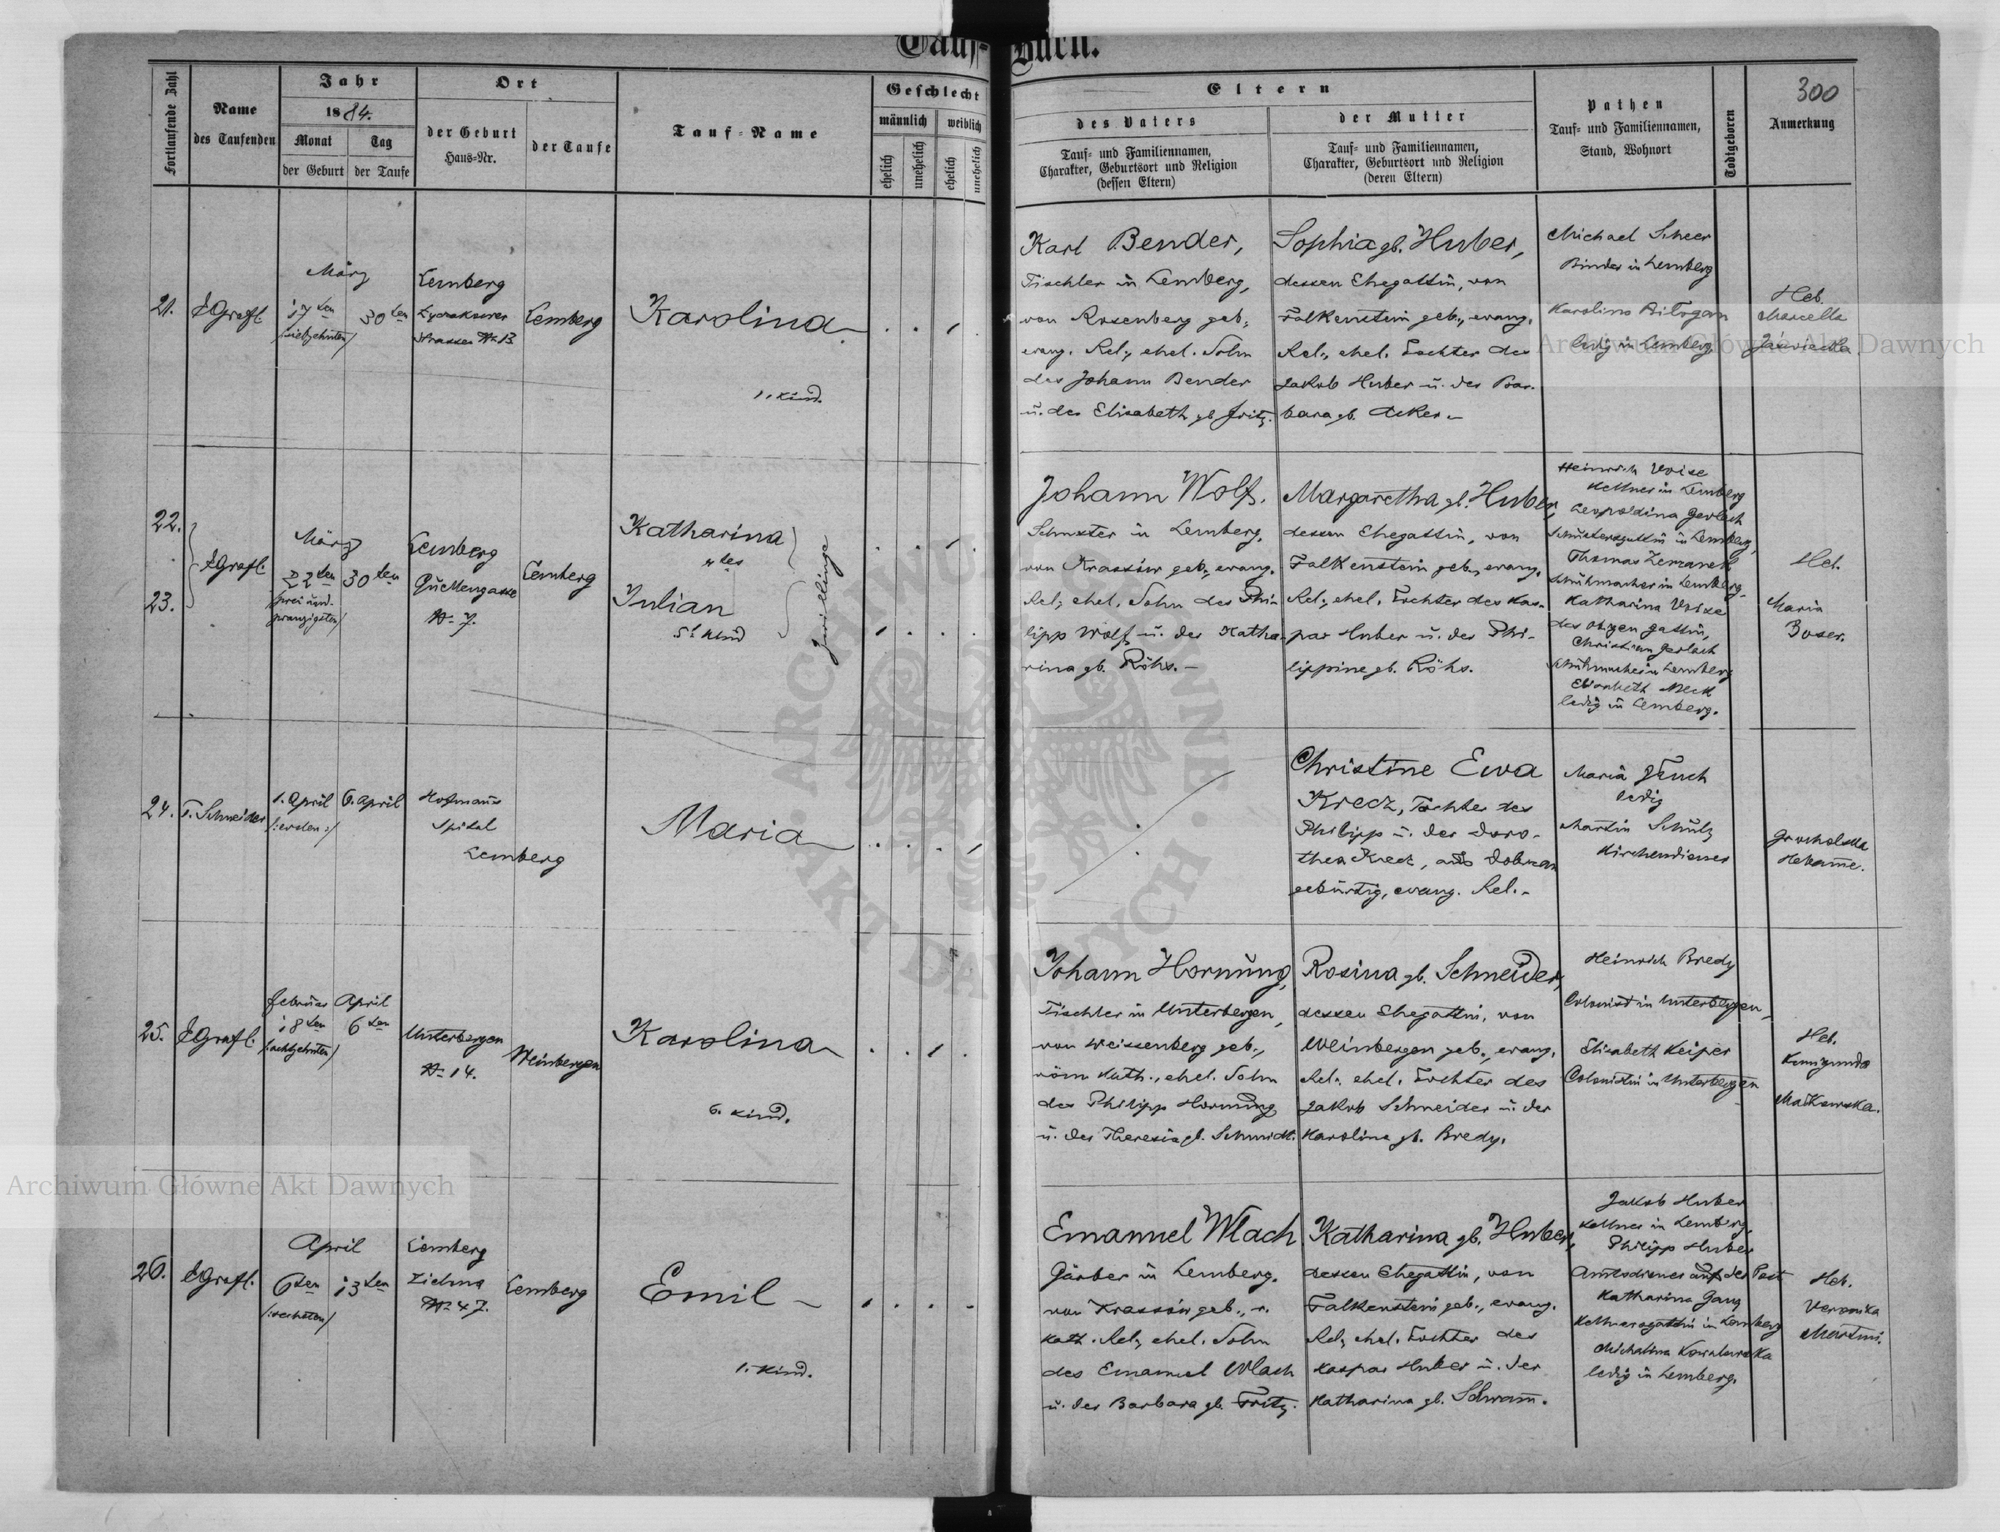 Tauf-Buch.
300
Fortlaufende Zahl
Name
des Taufenden
Jahr
1884.
Monat
der Geburt
Tag
der Taufe
Ort
der Geburt
Haus-Nr.
der Taufe
Tauf-Name
Geschlecht
männlich
weiblich
ehelich
unehelich
ehelich
unehelich
Eltern
des Vaters
Tauf- und Familiennamen,
Charakter, Geburtsort und Religion
(dessen Eltern)
der Mutter
Tauf- und Familiennamen,
Charakter, Geburtsort und Religion
(deren Eltern)
Pathen
Tauf- und Familiennamen,
Stand, Wohnort
Todtgeboren
Anmerkung
21.
März
17ten
/:siebzehnten/
30ten
Lemberg
Strasse Nr. 13
Lemberg
Karolina
1. Kind.
Karl Bender,
Tischler in Lemberg,
von Rosenberg geb.,
evang. Rel., ehel. Sohn
des Johann Bender
u. der Elisabeth gb. Fritz.
Sophia gb. Huber,
dessen Ehegattin, von
Falkenstein geb., evang.
Rel., ehel. Tochter des
Jakob Huber u. der Bar-
bara gb. Acker.
Michael Scheer
Binder in Lemberg
Karolina
ledig in Lemberg
Heb.
Marcella
22.
23.
März
22ten
/zwei und
zwanzigsten/
30ten
Lemberg
Nr. 7.
Lemberg
Katharina
4tes
Julian
5t Kind
Zwillinge
Johann Wolf,
Schuster in Lemberg,
von Krassów geb., evang.
Rel., ehel. Sohn des Phi-
lipp Wolf u. der Katha-
rina gb. Röhs.
Margaretha gb. Huber,
dessen Ehegattin, von
Falkenstein geb., evang.
Rel., ehel. Tochter des Kas-
par Huber u. der Phi-
lippine gb. Röhs.
Heinrich Weise
Kellner in Lemberg
Leopoldina Gerlach
Schustersgattin in Lemberg,
Thomas Zemanek
Schuhmacher in Lemberg.
Katharina Weise
des obigen Gattin,
Christian Gerlach
Schuhmacher in Lemberg
Elisabeth Meck
ledig in Lemberg.
Heb.
Maria
24.
T. Schneider
1. April
/:ersten:/
6. April
Hofmanns
Spital
Lemberg
Maria
Christine Ewa
Krecz, Tochter des
Philipp u. der Doro-
thea Krecz, aus
gebürtig, evang. Rel.
Maria
ledig
Martin Schulz
Kirchendiener
Hebamme.
25.
Februar
18ten
/achtzehnten/
April
6ten
Unterbergen
Nr. 14.
Weinbergen
Karolina
6. Kind.
Johann Hornung,
Tischler in Unterbergen,
von Weissenberg geb.,
röm. kath., ehel. Sohn
des Philipp Hornung
u. der Theresia gb. Schmidt.
Rosina gb. Schneider,
dessen Ehegattin, von
Weinbergen geb., evang.
Rel., ehel. Tochter des
Jakob Schneider u. der
Karolina gb. Bredy.
Heinrich Bredy
Colonist in Unterbergen,
Elisabeth Keiper
Colonistin in Unterbergen
Heb.
Kunigunda
26.
April
6ten
/:sechsten/
13ten
Lemberg
Zielona
Nr. 47.
Lemberg
Emil
1. Kind.
Emanuel Wlach
Gärber in Lemberg,
von Krassów geb., r.
kath. Rel., ehel. Sohn
des Emanuel Wlach
u. der Barbara gb. Fritz.
Katharina gb. Huber,
dessen Ehegattin, von
Falkenstein geb., evang.
Rel., ehel. Tochter des
Kaspar Huber u. der
Katharina gb. Schwam.
Jakob Huber
Kellner in Lemberg,
Philipp Huber
Amtsdiener auf der Post
Katharina Gang
Kellnersgattin in Lemberg
Michalina Kowalewska
ledig in Lemberg.
Heb.
Veronika
Martini.
Archiwum Główne Akt Dawnych
Archiwum Główne Akt Dawnych